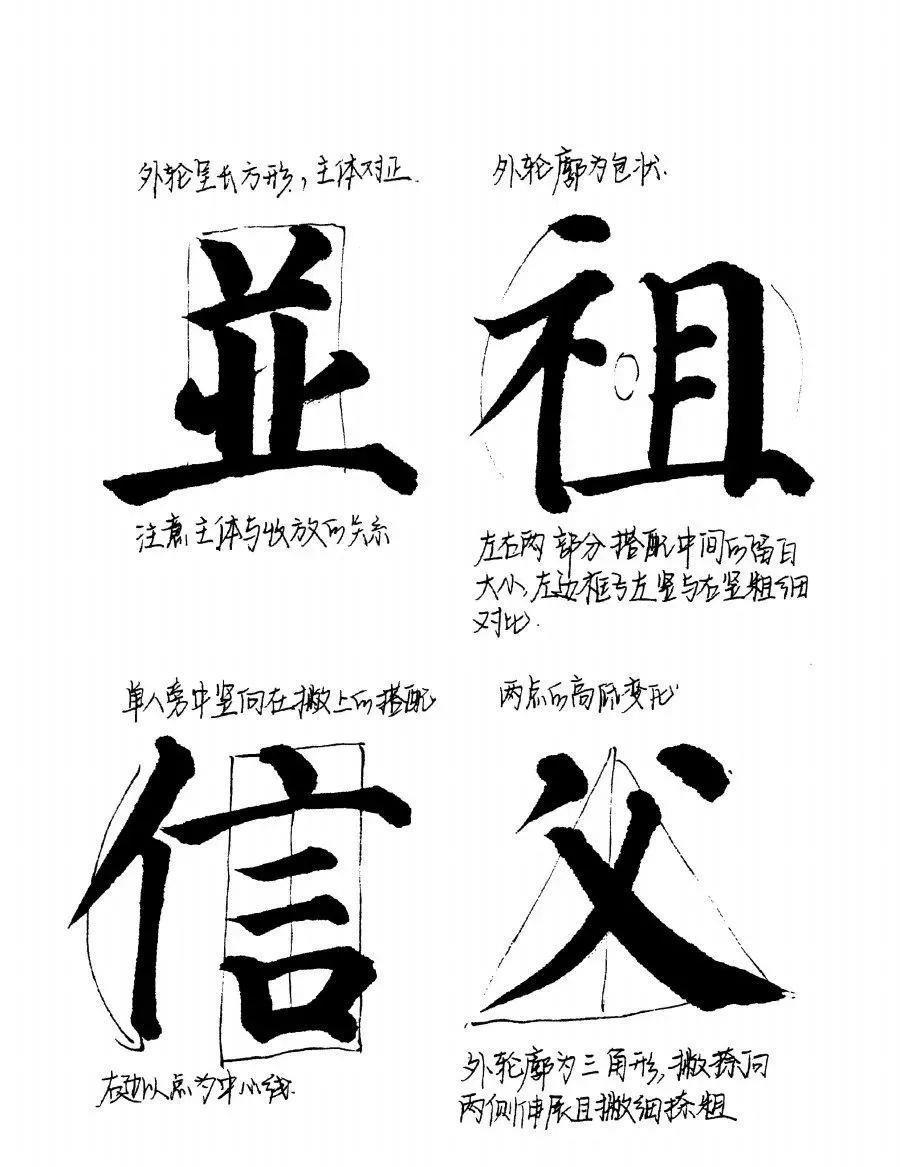 外轮呈长方形，主体对正.
外轮廓为包状.
並
祖
注意主体与收放的关系
左右两部分搭配中间的留白
大小，左边框与左竖与右竖粗细
对比.
单人旁中竖向在撇上的搭配
两点的高低变形
信
父
右边以点为中心线.
外轮廓为三角形，撇捺向
两侧伸展且撇细捺粗